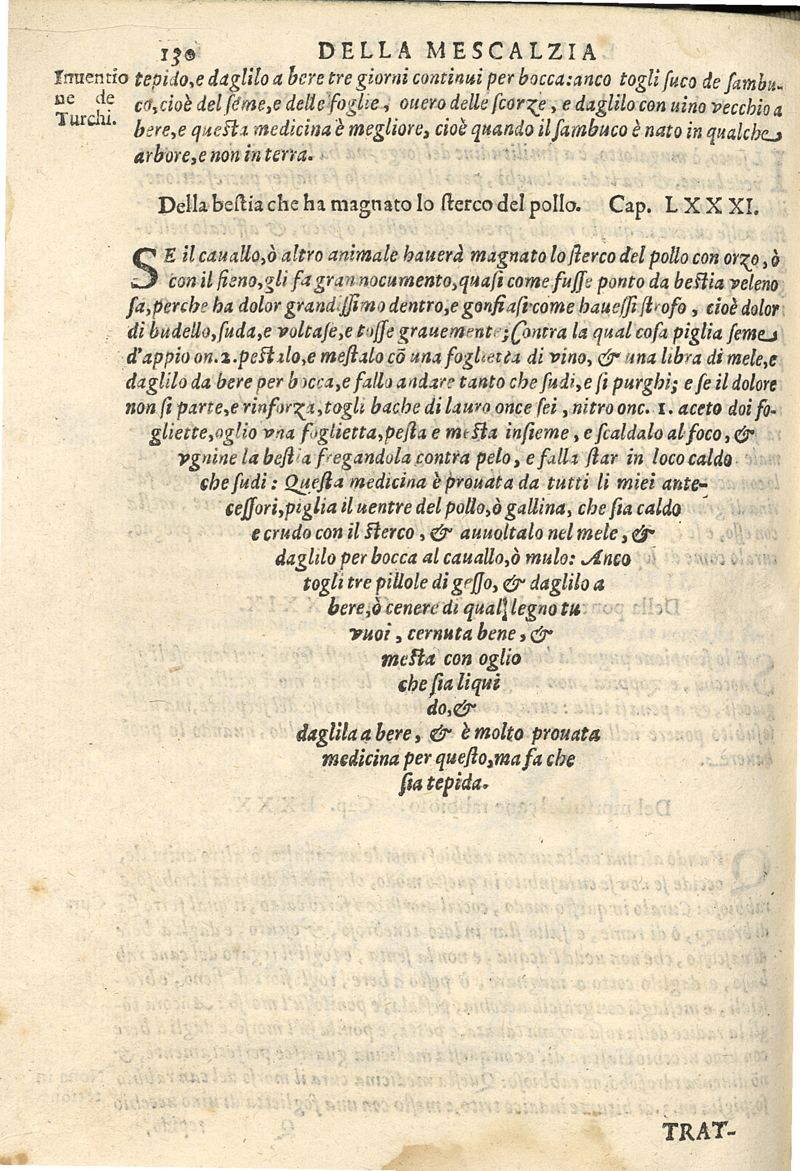 130 DELLA MESCALZIA
Inuentio
ne de
Turchi.
tepido,e daglilo a bere tre giorni continui per bocca:anco togli suco de sambu-
co,cioè del seme,e delle foglie, ouero delle scorze, e daglilo con uino vecchio a
bere,e questa medicina è megliore, cioè quando il sambuco è nato in qualche
arbore,e non in terra.
Della bestia che ha magnato lo sterco del pollo. Cap. LXXXI.
SE il cauallo,ò altro animale hauerà magnato lo sterco del pollo con orzo, ò
con il fieno,gli fa gran nocumento,quasi come fusse ponto da bestia veleno
sa,perche ha dolor grandissimo dentro,e gonfiasi come hauessi strofo, cioè dolor
di budello,suda,e voltase,e tosse grauemente;Contra la qual cosa piglia seme
d'appio on.2.pestalo,e mestalo cõ una foglietta di vino, & una libra di mele,e
daglilo da bere per bocca,e fallo andare tanto che sudi,e si purghi; e se il dolore
non si parte,e rinforza,togli bache di lauro once sei, nitro onc. 1. aceto doi fo-
gliette,oglio vna foglietta,pesta e mesta insieme, e scaldalo al foco, &
vgnine la bestia fregandola contra pelo, e falla star in loco caldo
che sudi: Questa medicina è prouata da tutti li miei ante-
cessori,piglia il uentre del pollo,ò gallina, che sia caldo
e crudo con il sterco, & auuoltalo nel mele, &
daglilo per bocca al cauallo,ò mulo: Anco
togli tre pillole di gesso, & daglilo a
bere,ò cenere di qual legno tu
vuoi, cernuta bene, &
mesta con oglio
che sia liqui
do,&
daglila a bere, & è molto prouata
medicina per questo,ma fa che
sia tepida.
TRAT-